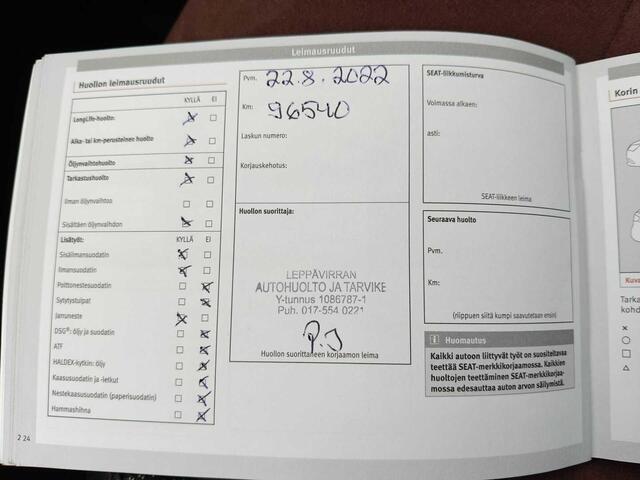 Leimausruudut
Huollon leimausruudut
KYLLÄ EI
LongLife-huolto:
Aika- tai km-perusteinen huolto
Öljynvaihtohuolto
Tarkastushuolto
Ilman öljynvaihtoa
Sisältäen öljynvaihdon
Lisätyöt: KYLLÄ EI
Sisäilmansuodatin
Ilmansuodatin
Polttonestesuodatin
Sytytystulpat
Jarruneste
DSG®: öljy ja suodatin
ATF
HALDEX-kytkin: öljy
Kaasusuodatin ja -letkut
Nestekaasusuodatin (paperisuodatin)
Hammashihna
2 24
Pvm. 22.8.2022
Km: 96540
Laskun numero:
Korjauskehotus:
Huollon suorittaja:
LEPPÄVIRRAN
AUTOHUOLTO JA TARVIKE
Y-tunnus 1086787-1
Puh. 017-554 0221
P.J
Huollon suorittaneen korjaamon leima
SEAT-liikkumisturva
Voimassa alkaen:
asti:
SEAT-liikkeen leima
Seuraava huolto
Pvm.
Km:
(riippuen siitä kumpi saavutetaan ensin)
Huomautus
Kaikki autoon liittyvät työt on suositeltavaa
teettää SEAT-merkkikorjaamossa. Kaikkien
huoltojen teettäminen SEAT-merkkikorjaa-
mossa edesauttaa auton arvon säilymistä.
Korin
Kuva
Tarka
kohd